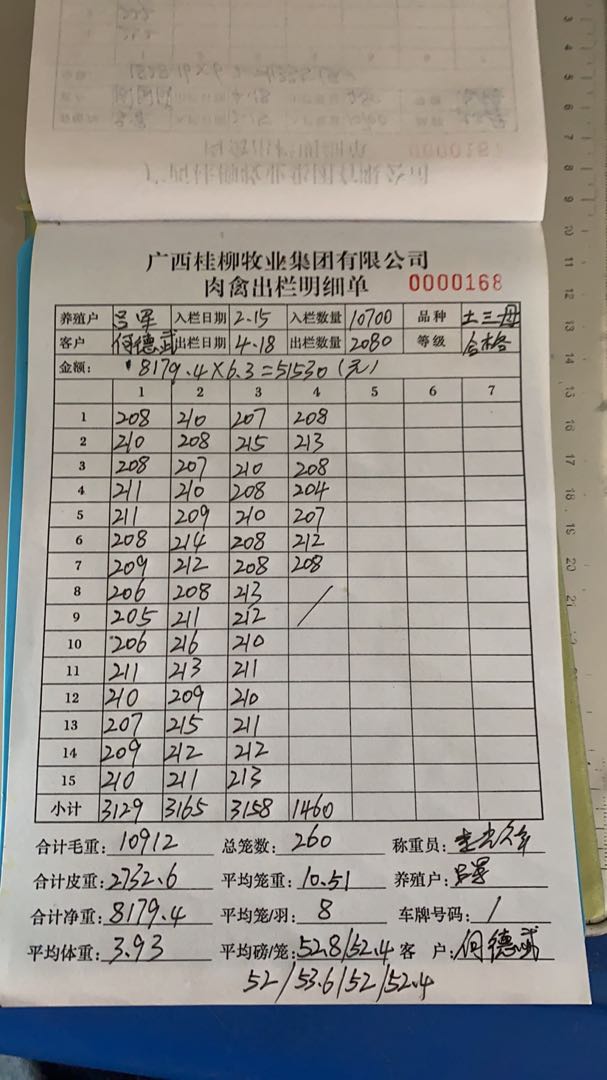 广西桂柳牧业集团有限公司
肉禽出栏明细单 0000168
养殖户 吕军 入栏日期 2.15 入栏数量 10700 品种 土三母
客户 何德武 出栏日期 4.18 出栏数量 2080 等级 合格
金额: 8179.4×6.3=51530(元)
1 2 3 4 5 6 7
1 208 210 207 208
2 210 208 215 213
3 208 207 210 208
4 211 210 208 204
5 211 209 210 207
6 208 214 208 212
7 209 212 208 208
8 206 208 213 /
9 205 211 212
10 206 216 210
11 211 213 211
12 210 209 210
13 207 215 211
14 209 212 212
15 210 211 213
小计 3129 3165 3158 1460
合计毛重: 10912 总笼数: 260 称重员:
合计皮重: 2732.6 平均笼重: 10.51 养殖户: 吕军
合计净重: 8179.4 平均笼/羽: 8 车牌号码: /
平均体重: 3.93 平均磅/笼: 52.8/52.4 客 户: 何德武
52/53.6/52/52.4